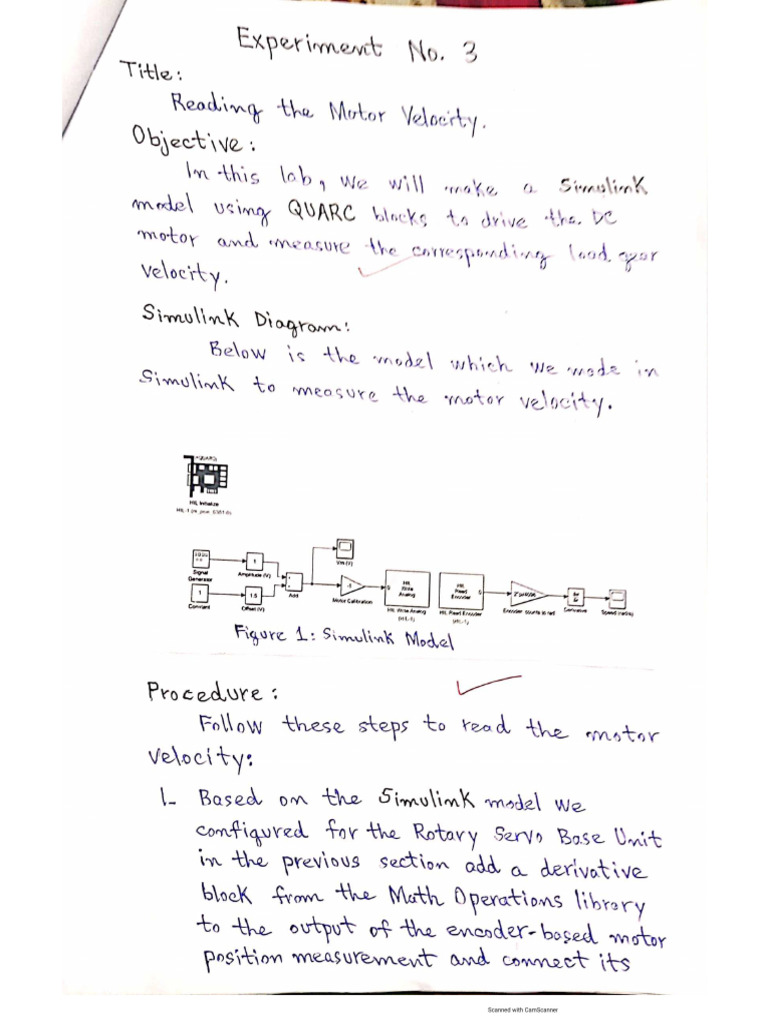 Experiment No. 3
Title:
Reading the Motor Velocity.
Objective:
In this lab, we will make a Simulink
model using QUARC blocks to drive the DC
motor and measure the corresponding load gear
velocity.
Simulink Diagram:
Below is the model which we made in
Simulink to measure the motor velocity.
HIL Initialize
Vm (V)
Signal
Generator
1
Amplitude (V)
1
Constant
1.5
Offset (V)
Add
-1
Motor Calibration
HIL
Write
Analog
HIL Write Analog
HIL
Read
Encoder
HIL Read Encoder
Encoder counts to rad
Derivative
Speed (rad/s)
Figure 1: Simulink Model
Procedure:
Follow these steps to read the motor
velocity:
1- Based on the Simulink model we
configured for the Rotary Servo Base Unit
in the previous section add a derivative
block from the Math Operations library
to the output of the encoder-based motor
position measurement and connect its
Scanned with CamScanner